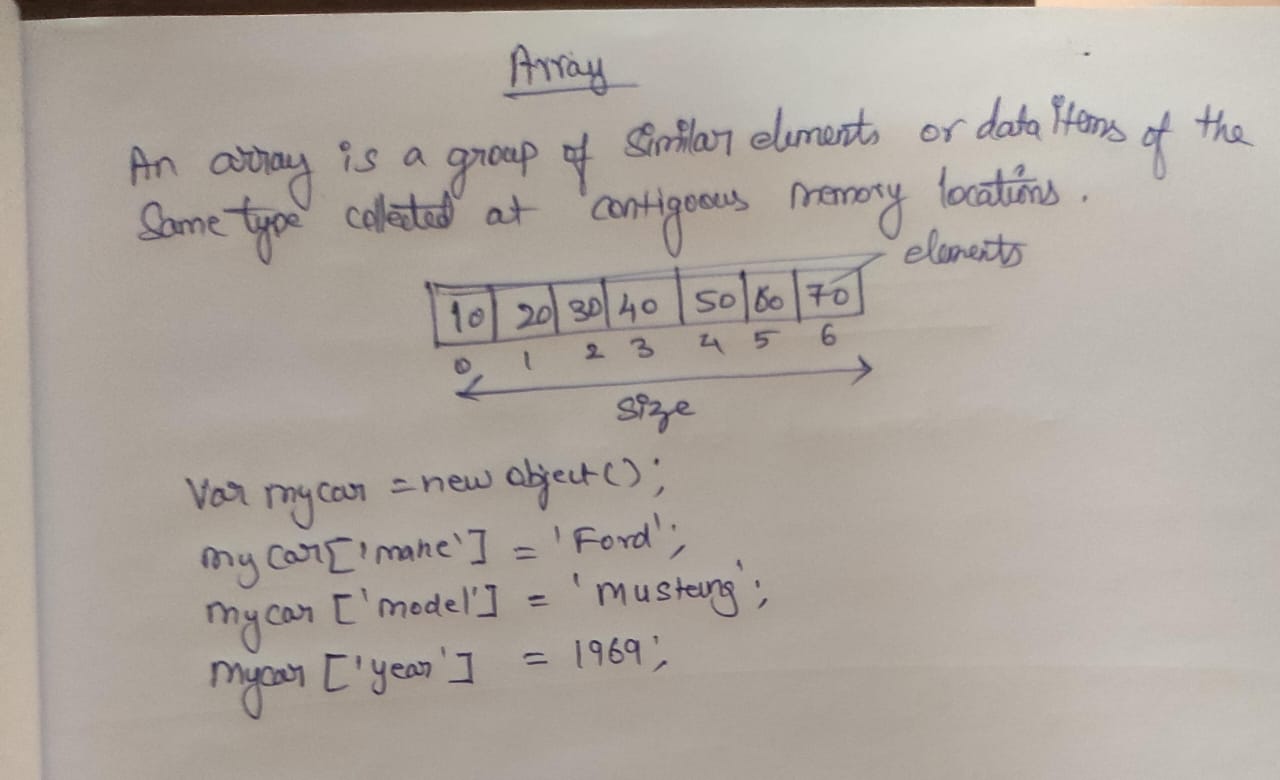 Array
An array is a group of similar elements or data items of the
Same type collected at contigoous memory locations.
elements
10 20 30 40 50 60 70
0 1 2 3 4 5 6
size
Var mycar = new object();
my car['mane'] = 'Ford';
mycar ['model'] = 'musteung';
mycar ['year'] = 1969;